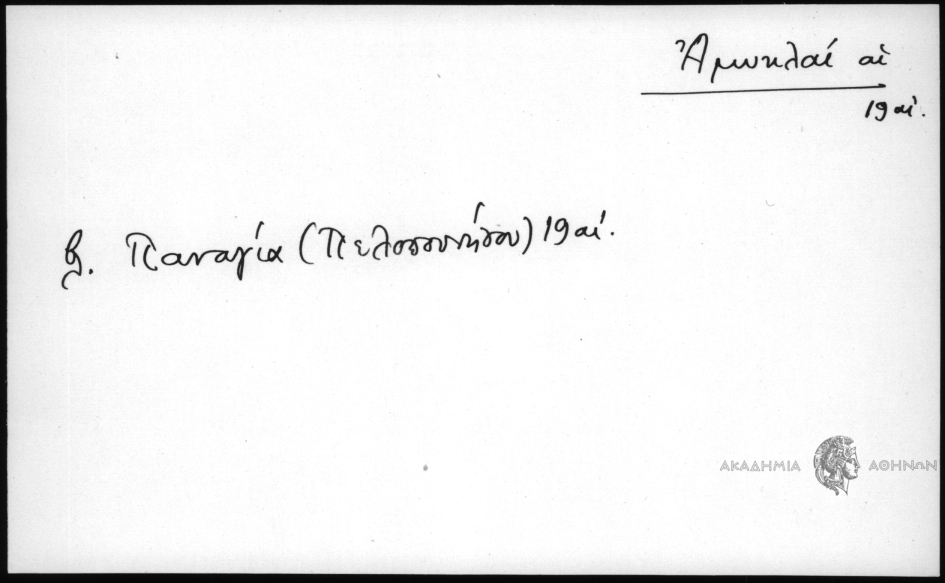 Ἀμυκλαί αἱ
19 αἰ.
βλ. Παναγία (Πελοποννήσου) 19 αἰ.
ΑΚΑΔΗΜΙΑ ΑΘΗΝΩΝ